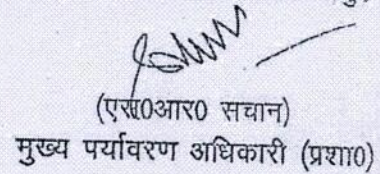 (एस0आर0 सचान)
मुख्य पर्यावरण अधिकारी (प्रशा0)